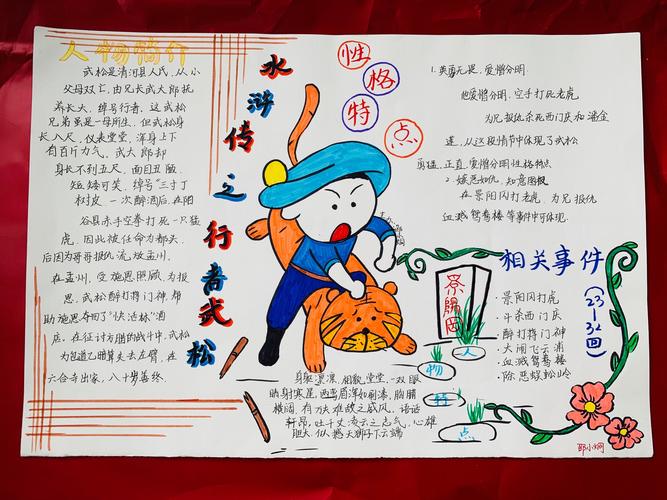 人物简介
武松是清河县人氏,从小
父母双亡,由兄长武大郎抚
养长大,绰号行者,这武松
兄弟虽是一母所生,但武松身
长八尺,仪表堂堂,浑身上下
有百斤力气,武大郎却
身长不到五尺,面目丑陋,
短矮可笑,绰号“三寸丁
树皮,一次醉酒后,在阳
谷县赤手空拳打死一只猛
虎,因此被任命为都头,
后因为哥哥报仇流放孟州,
在孟州,受施恩照顾,为报
恩,武松醉打蒋门神,帮
助施恩夺回了“快活林”酒
店,在征讨方腊的战斗中,武松
为包道乙暗算失去左臂,在
六合寺出家,八十岁善终.
水浒传之行者武松
性格特点
1.英勇无畏,爱憎分明:
他爱憎分明,空手打死老虎
为兄报仇杀死西门庆和潘金
莲,从这段情节中体现了武松
勇猛、正直、爱憎分明性格特点
2.嫉恶如仇,知恩图报
在景阳冈打老虎,为兄报仇
血溅鸳鸯楼等事件中可体现.
相关事件
(23-32回)
·景阳冈打虎
·斗杀西门庆
·醉打蒋门神
·大闹飞云浦
·血溅鸳鸯楼
·除恶蜈蚣岭
景阳冈
人物特点
身躯凛凛,相貌堂堂,一双眼
光射寒星,两弯眉浑如刷漆,胸脯
横阔,有万夫难敌之威风,语话
轩昂,吐千丈凌云之志气,心雄
胆大,似撼天狮子下云端